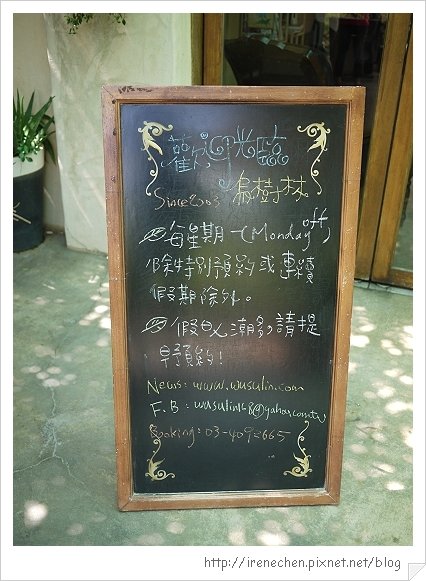 歡迎光臨
Since2003 烏樹林
每星期一(Monday off)
除特別預約或連續
假期除外。
假日人潮多,請提
早預約!
News: www.wusulin.com
F.B: wusulin168@yahoo.com.tw
Booking: 03-4092665
http://irenechen.pixnet.net/blog